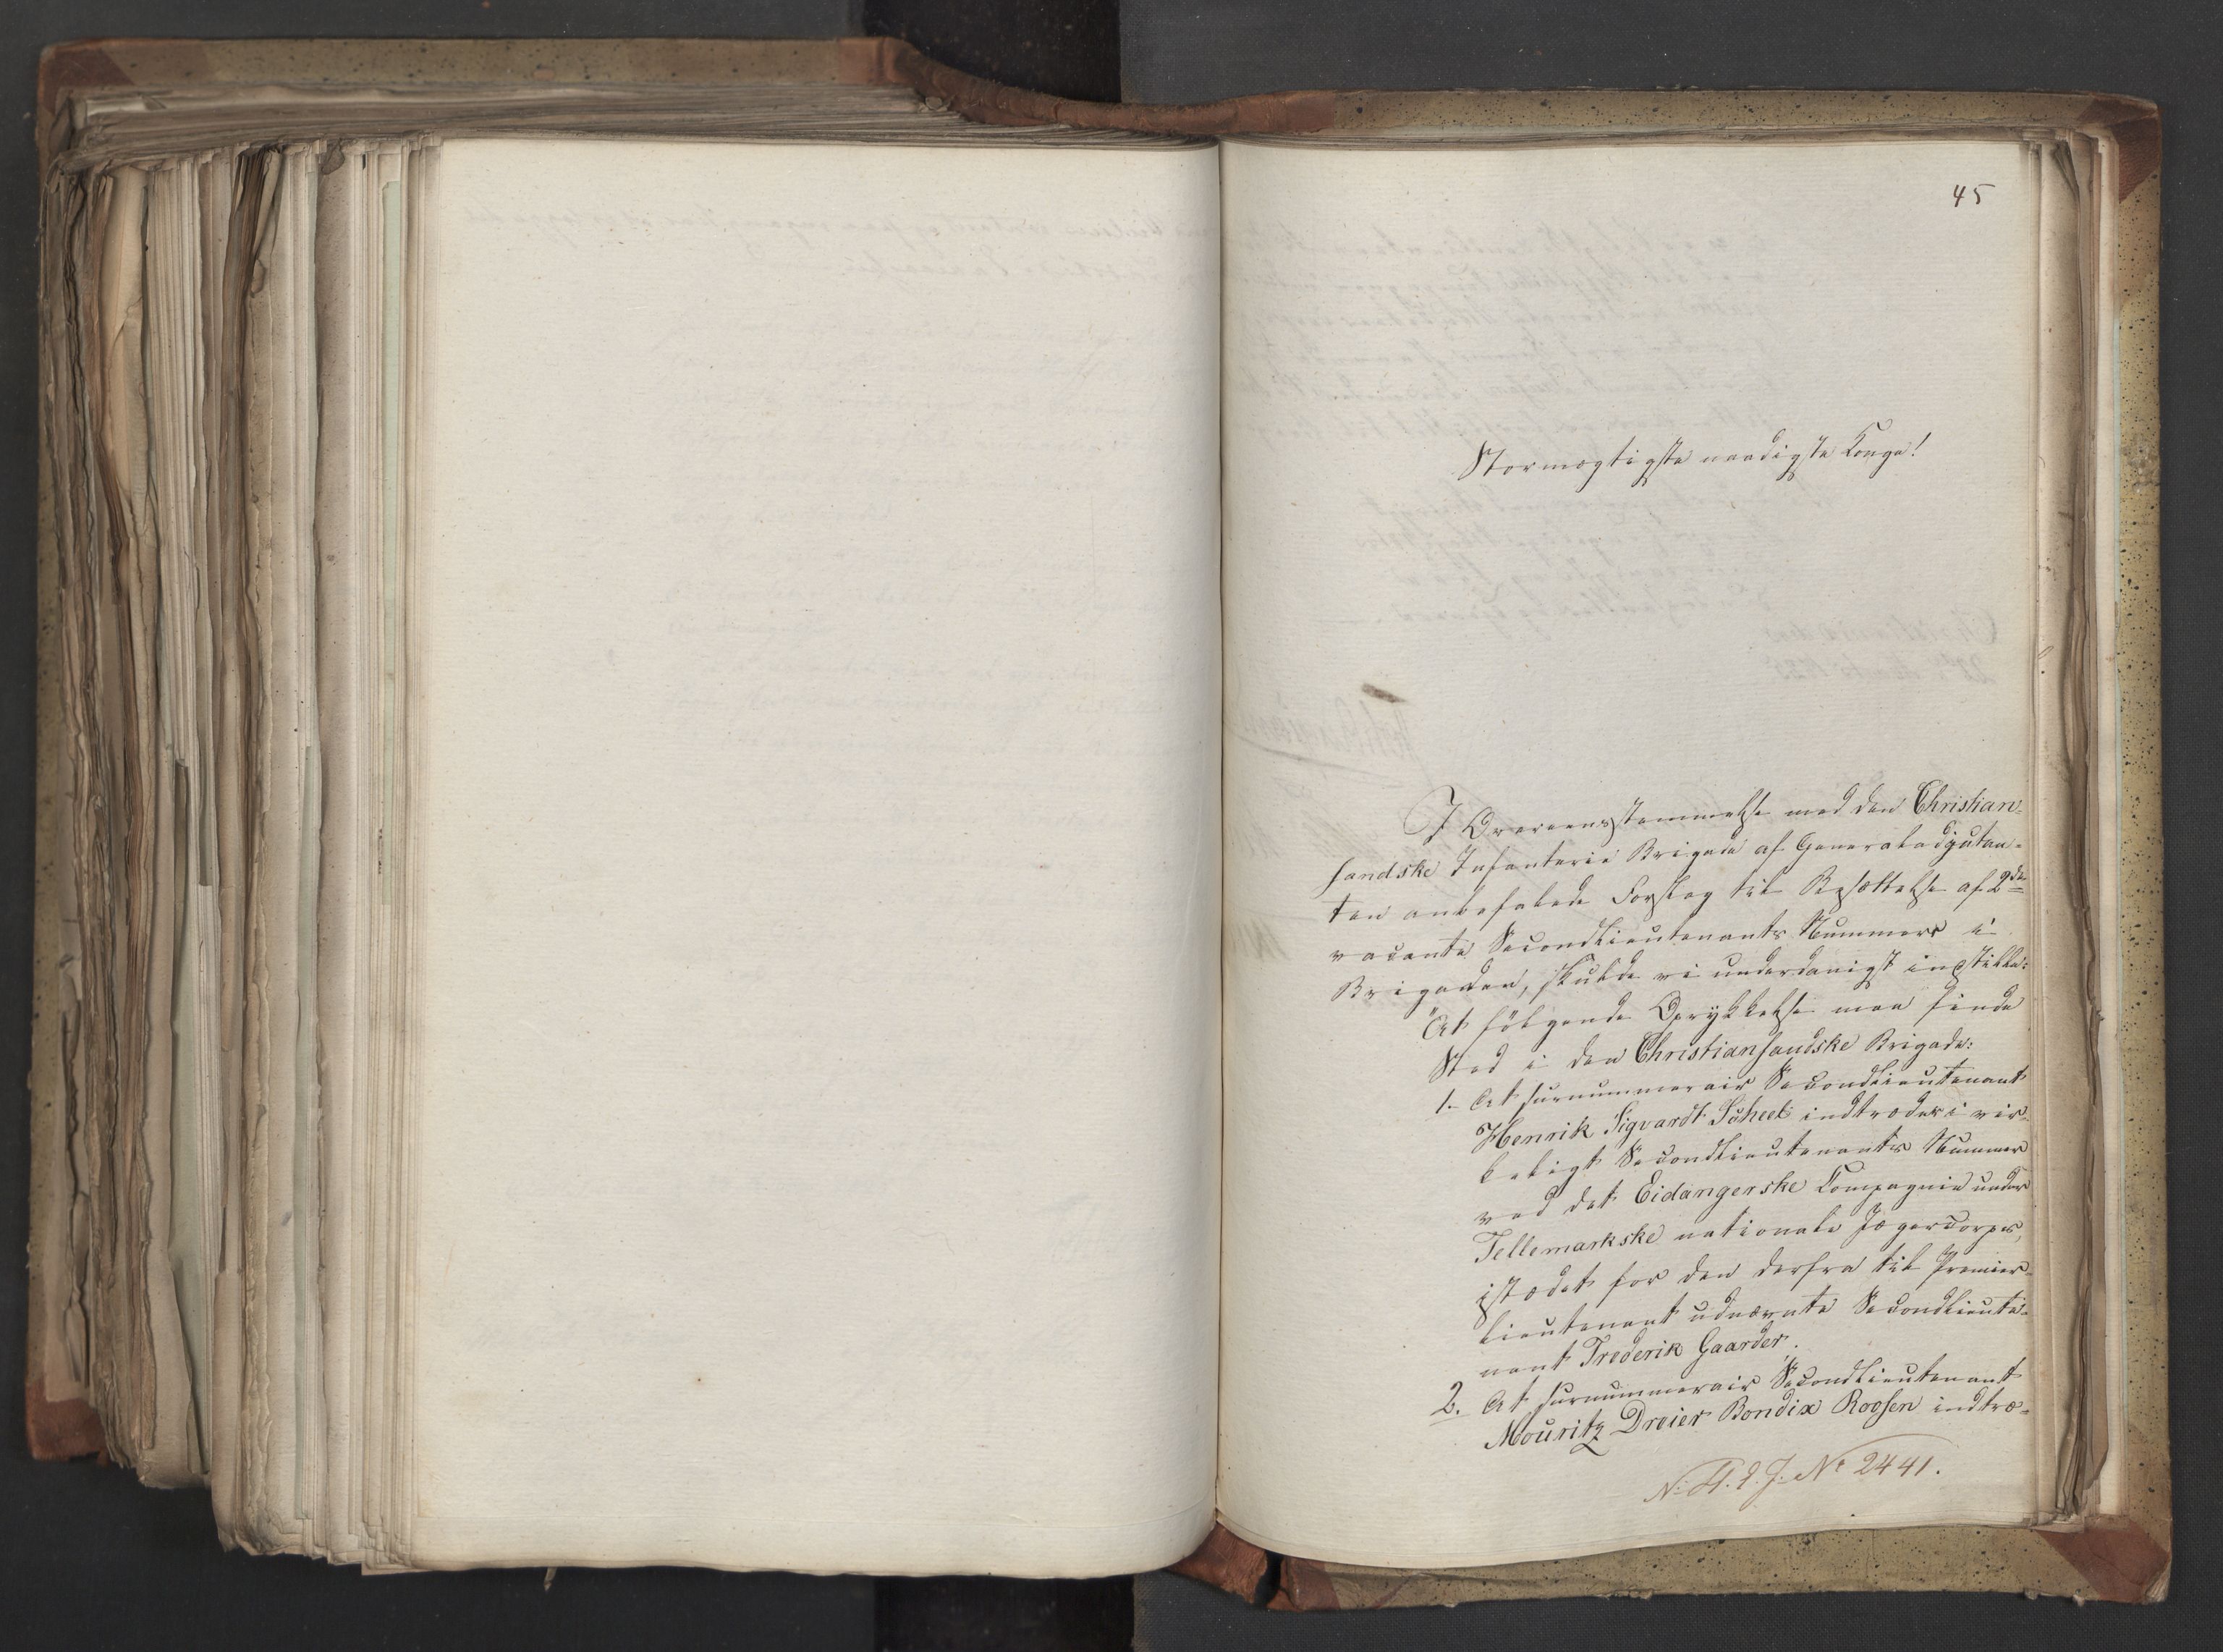 45
Stormægtigste naadigste Konge!
I Overeensstemmelse med den Christian-
sandske Infanterie Brigade af Generaladjutan-
ten anbefalede Forslag til Besættelse af 2de
vacante Secondlieutenants Nummere i
Brigaden, skulde vi underdanigst indstille:
"At følgende Oprykkelse maa finde
Sted i den Christiansandske Brigade:
1. At surnummerair Secondlieutenant
Henrik Sigvardt Scheel indtræder i vir-
keligt Secondlieutenants Nummer
ved det Eidangerske Compagnie under
Tellemarkske nationale Jægercorps,
istædet for den derfra til Premier-
lieutenant udnævnte Secondlieute-
nant Frederik Gaarder.
2. At surnummerair Secondlieutenant
Mouritz Dreier Bondix Roosen indtræ-
J. No 2441.